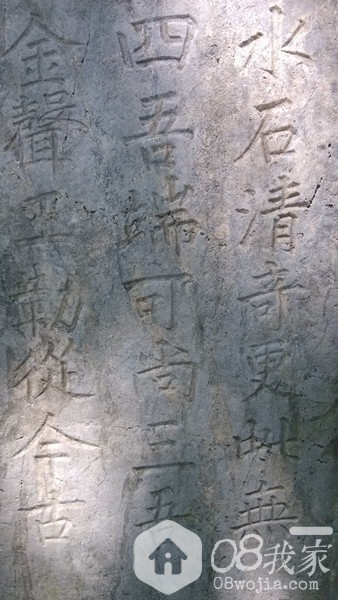 水石清奇更無
四吾端可尚三吾
金聲玉勒從今古
08我家
08wojia.com